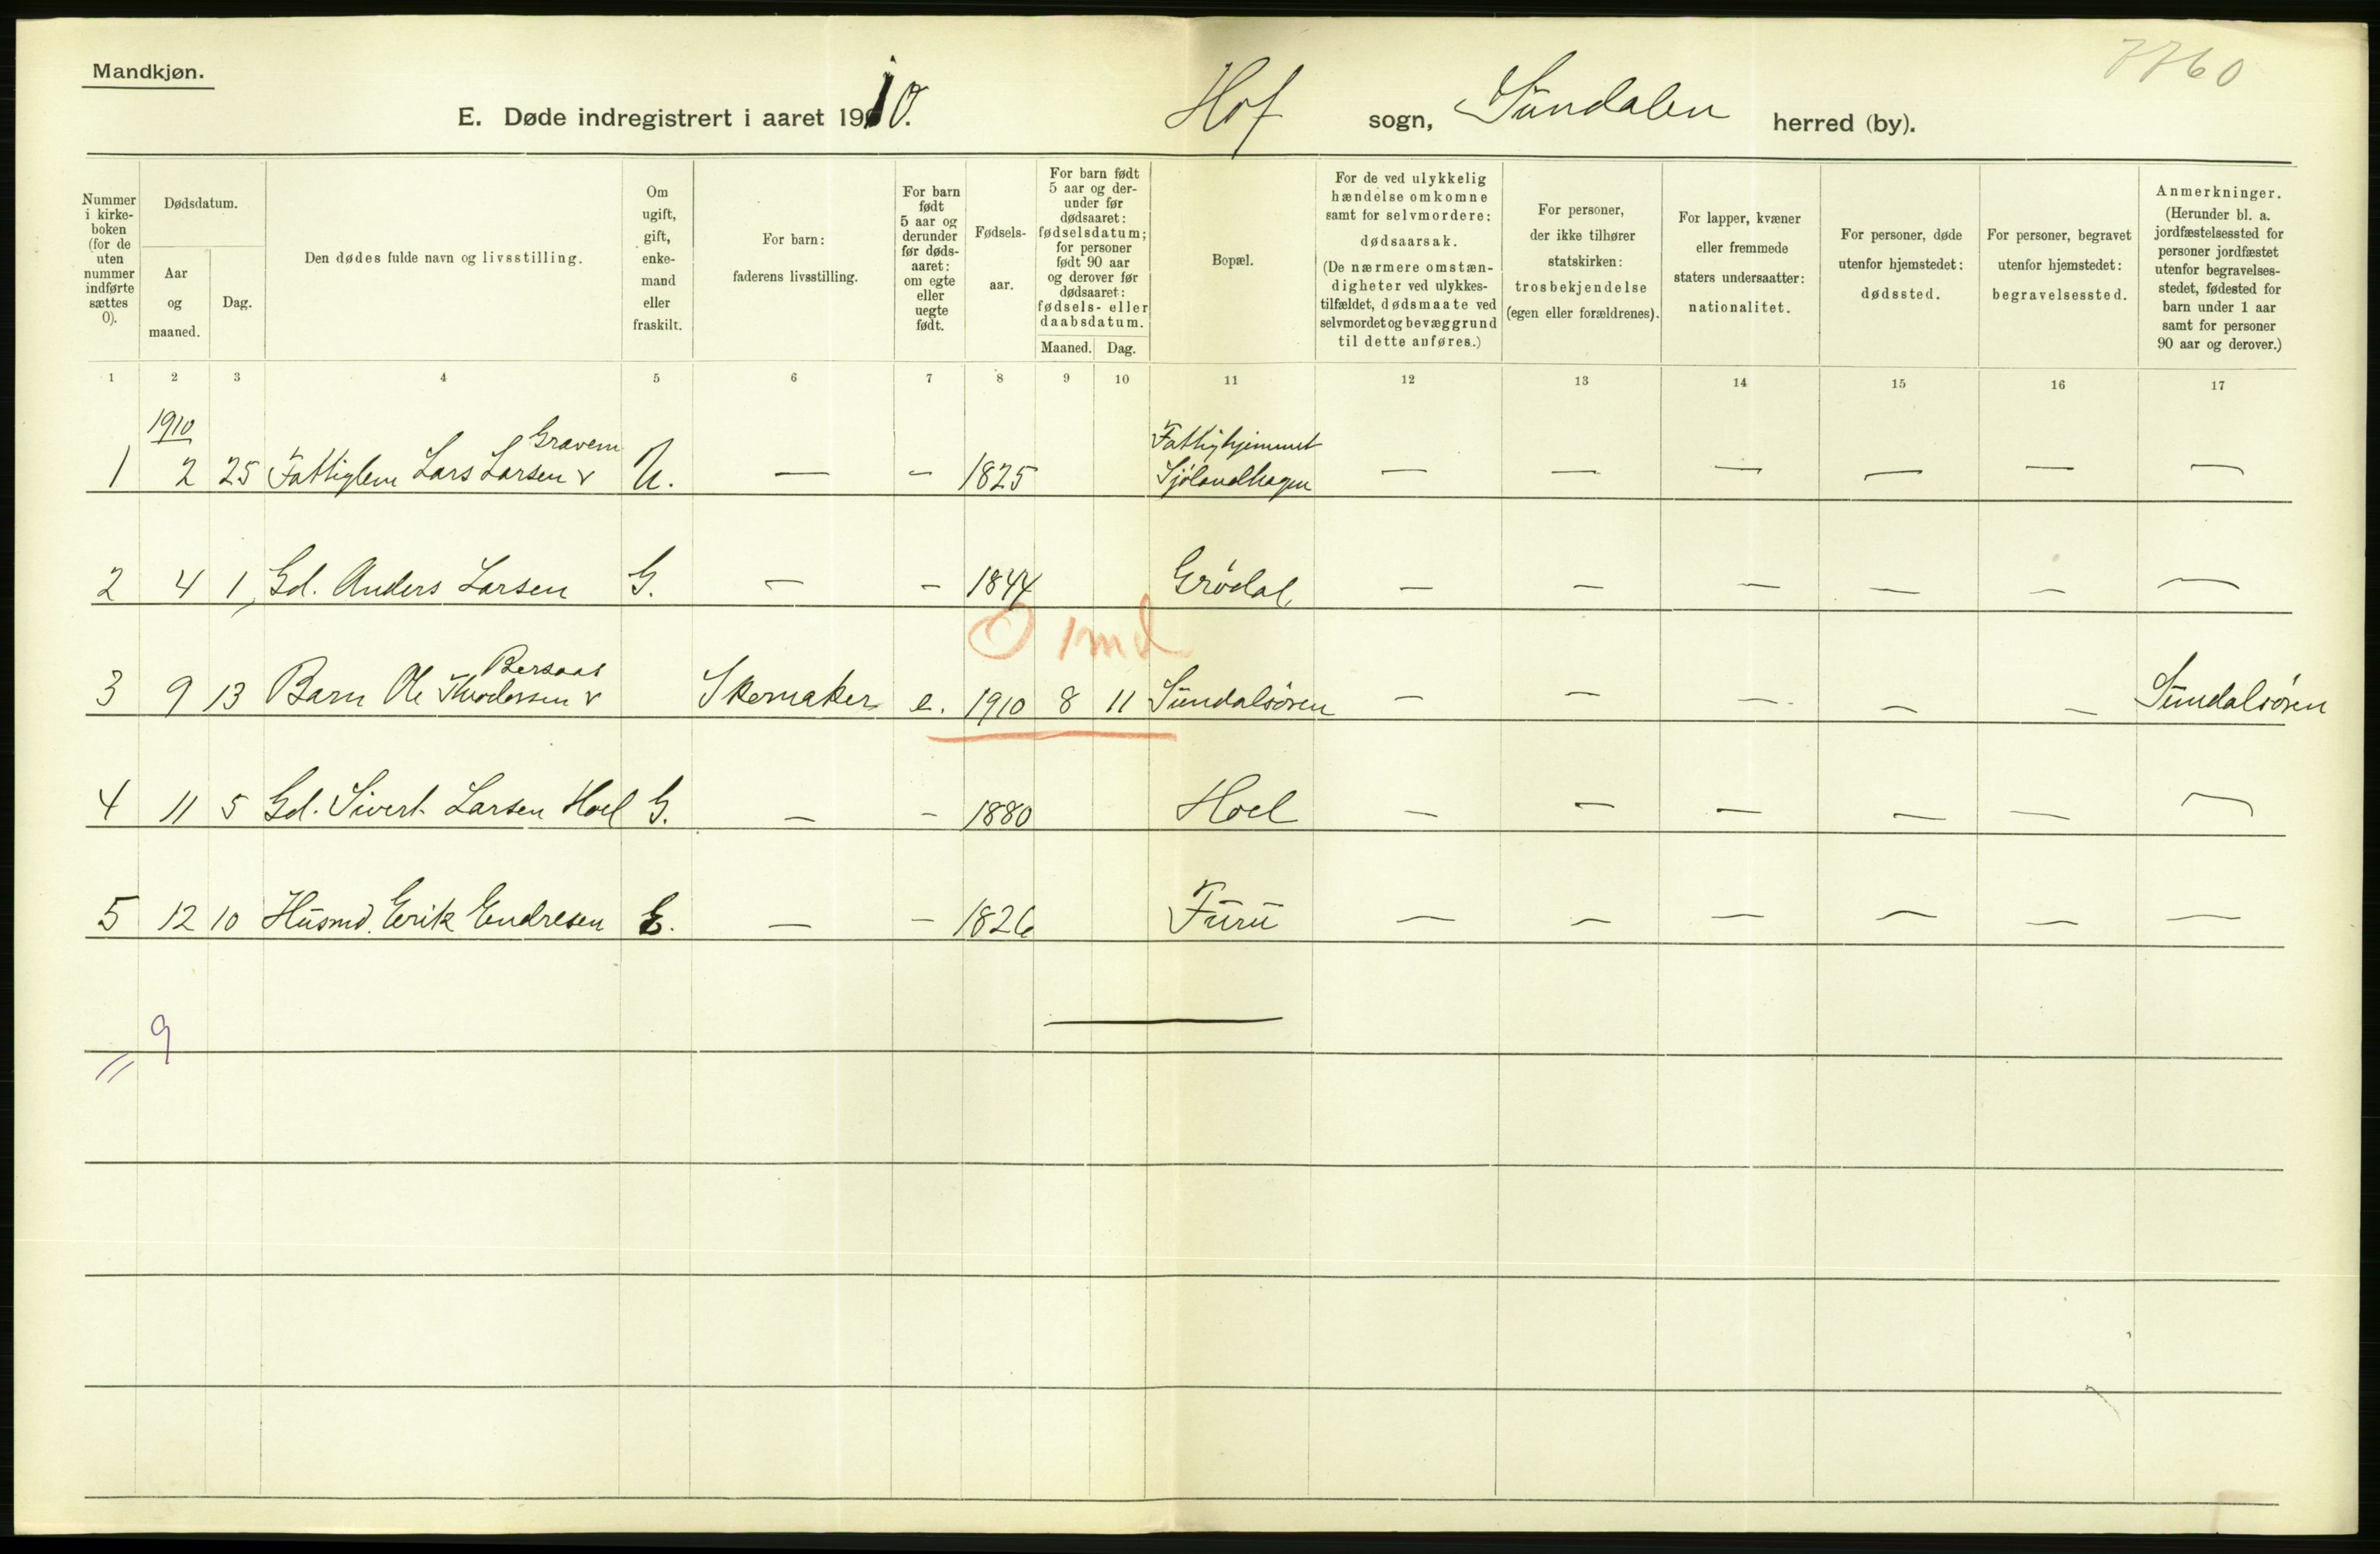 7760
Mandkjøn.
E. Døde indregistrert i aaret 1910. Hof sogn, Sundalen herred (by).
Nummer i kirke-boken (for de uten nummer indførte sættes 0).
Dødsdatum.
Aar og maaned.
Dag.
Den dødes fulde navn og livsstilling.
Om ugift, gift, enke-mand eller fraskilt.
For barn: faderens livsstilling.
For barn født 5 aar og derunder før døds-aaret: om egte eller uegte født.
Fødsels-aar.
For barn født 5 aar og der-under før dødsaaret: fødselsdatum; for personer født 90 aar og derover før dødsaaret: fødsels- eller daabsdatum.
Maaned. Dag.
Bopæl.
For de ved ulykkelig hændelse omkomne samt for selvmordere: dødsaarsak. (De nærmere omstæn-digheter ved ulykkes-tilfældet, dødsmaate ved selvmordet og bevæggrund til dette anføres.)
For personer, der ikke tilhører statskirken: trosbekjendelse (egen eller forældrenes).
For lapper, kvæner eller fremmede staters undersaatter: nationalitet.
For personer, døde utenfor hjemstedet: dødssted.
For personer, begravet utenfor hjemstedet: begravelsessted.
Anmerkninger. (Herunder bl. a. jordfæstelsessted for personer jordfæstet utenfor begravelses-stedet, fødested for barn under 1 aar samt for personer 90 aar og derover.)
1 2 3 4 5 6 7 8 9 10 11 12 13 14 15 16 17
1910
Gravem Fattighjemmet
1 2 25 Fattiglem Lars Larsen v U. — — 1825 Sjølandhagen — — — — — —
2 4 1 Gd. Anders Larsen G. — — 1844 Grødal — — — — — —
0 1 md
Bersaas
3 9 13 Barn Ole Theodorsen v Skomaker e. 1910 8 11 Sundalsøren — — — — — Sundalsøren
4 11 5 Gd. Sivert Larsen Hoel G. — — 1880 Hoel — — — — — —
5 12 10 Husmd. Erik Endresen E. — — 1826 Furu — — — — — —
9